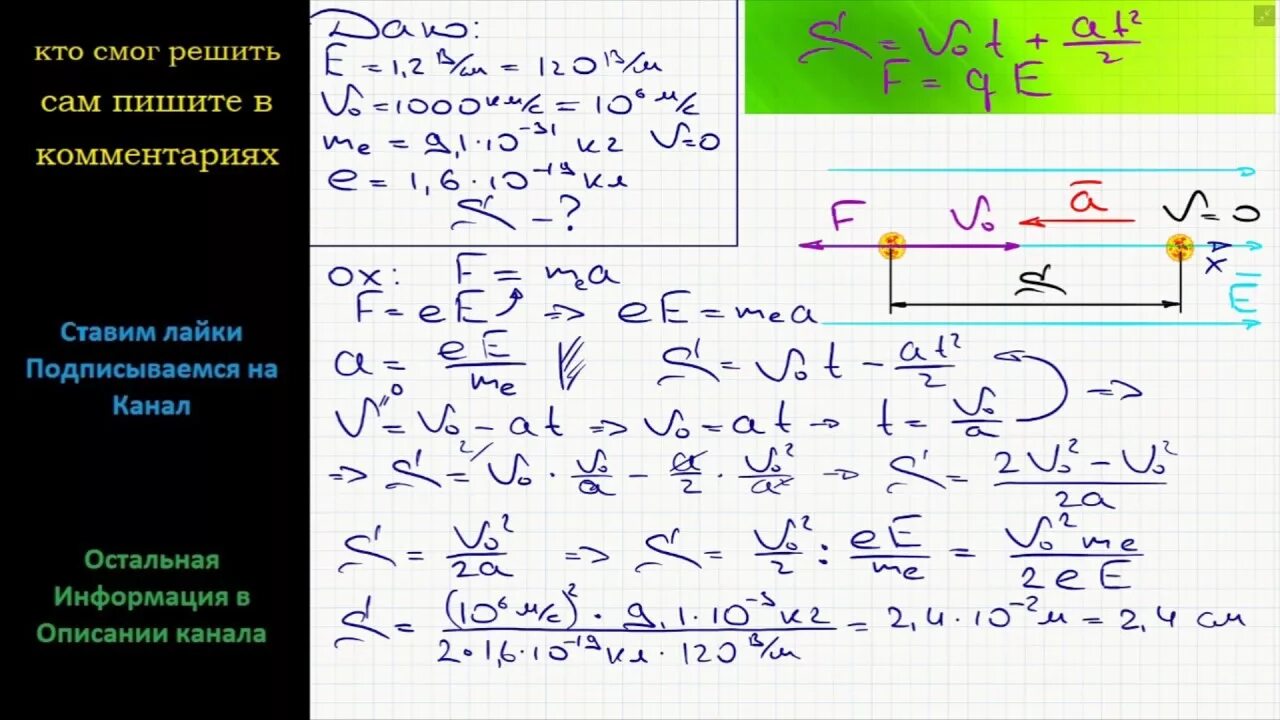 кто смог решить
сам пишите в
комментариях
Ставим лайки
Подписываемся на
Канал
Остальная
Информация в
Описании канала
Дано:
E = 1,2 В/см = 120 В/м
V₀ = 1000 км/с = 10⁶ м/с
mₑ = 9,1·10⁻³¹ кг V=0
e = 1,6·10⁻¹⁹ кл
S – ?
S = V₀t + at²/2
F = qE
F V₀ a̅ V=0
x
S
E̅
ox: F = mₑa
F = eE => eE = mₑa
a = eE/mₑ // S = V₀t – at²/2 =>
V⁼⁰ = V₀ – at => V₀ = at → t = V₀/a
=> S = ²/ V₀ · V₀/a – a/2 · V₀²/a² → S = (2V₀² – V₀²)/2a
S = V₀²/2a => S = V₀²/2 : eE/mₑ = V₀²mₑ/2eE
S = (10⁶ м/с)² · 9,1·10⁻³ кг / 2·1,6·10⁻¹⁹ кл · 120 В/м = 2,4·10⁻² м = 2,4 см